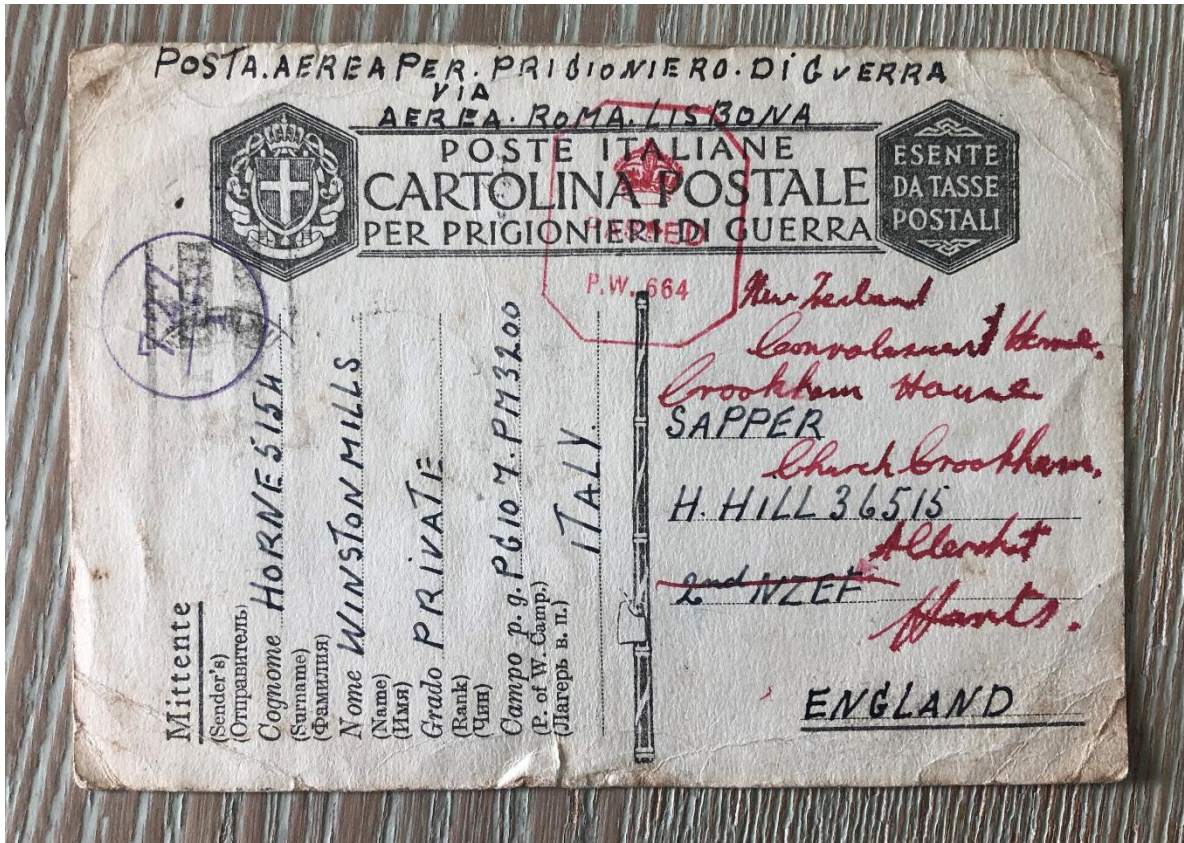 POSTA.AEREA PER. PRIGIONIERO. DI GUERRA
VIA
AEREA. ROMA. LISBONA
POSTE ITALIANE
CARTOLINA POSTALE
PER PRIGIONIERI DI GUERRA
ESENTE
DA TASSE
POSTALI
PASSED
P.W. 664
Mittente
(Sender's)
(Отправитель)
Cognome HORNE 5154
(Surname)
(Фамилия)
Nome WINSTON MILLS
(Name)
(Имя)
Grado PRIVATE
(Rank)
(Чин)
Campo p. g. PG107. PM3200
(P. of W. Camp.)
(Лагерь в. п.)
ITALY.
New Zealand
Convalescent Home,
Crookham House
SAPPER
Church Crookham,
H. HILL 36515
Aldershot
2nd NZEF
Hants.
ENGLAND